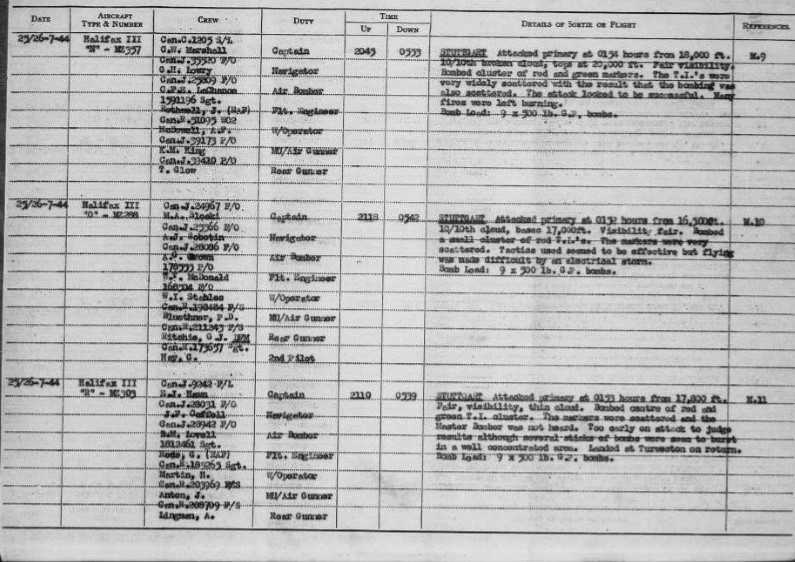 DATE AIRCRAFT TYPE & NUMBER CREW DUTY TIME UP DOWN DETAILS OF SORTIE OR FLIGHT REFERENCES
25/26-7-44 Halifax III Can.C.1205 S/L
"N" - MZ357 G.W. Marshall Captain 2045 0533 STUTTGART Attacked primary at 0154 hours from 18,000 ft. M.9
Can.J.35520 F/O 10/10th broken cloud, tops at 20,000 ft. Fair visibility.
G.H. Lowry Navigator Bombed cluster of red and green markers. The T.I.'s were
Can.J.25809 F/O very widely scattered with the result that the bombing was
LaChance Air Bomber also scattered. The attack looked to be successful. Many
1591196 Sgt. fires were left burning.
Rothwell, J. (RAF) Flt. Engineer Bomb Load: 9 x 500 lb. G.P. bombs.
Can.R.51095 WO2
McDowell, A.F. W/Operator
Can.J.39173 P/O
K.M. King MU/Air Gunner
Can.J.39410 P/O
T. Glow Rear Gunner
25/26-7-44 Halifax III Can.J.24967 F/O
"O" - MZ288 M.A. Captain 2118 0542 STUTTGART Attacked primary at 0152 hours from 16,500ft. M.10
F/O 10/10th cloud, bases 17,000ft. Visibility fair. Bombed
A.J. Sobotin Navigator a small cluster of red T.I.'s. The markers were very
Can.J.28086 F/O scattered. Tactics used seemed to be effective but flying
Brown Air Bomber was made difficult by an electrical storm.
178555 P/O Bomb Load: 9 x 500 lb. G.P. bombs.
McDonald Flt. Engineer
P/O
W.I. Stables W/Operator
Can.R.198484 F/S
Bluethner, P.D. MU/Air Gunner
Can.R.211243 F/S
Ritchie, G.J. DFM Rear Gunner
Can.R.173657 Sgt.
Hay, G. 2nd Pilot
25/26-7-44 Halifax III Can.J.9242 F/L
"R" - MZ303 Captain 2110 0539 STUTTGART Attacked primary at 0153 hours from 17,800 ft. M.11
Can.J.28031 F/O Fair, visibility, thin cloud. Bombed centre of red and
J.P. Navigator green T.I. cluster. The markers were scattered and the
Can.J.28942 F/O Master Bomber was not heard. Too early on attack to judge
Lovell Air Bomber results although several sticks of bombs were seen to burst
1812461 Sgt. in a well concentrated area. Landed at Turweston on return.
G. (RAF) Flt. Engineer Bomb Load: 9 x 500 lb. G.P. bombs.
Can.R.189265 Sgt.
Martin, H. W/Operator
Can.R.203969 F/S
Anton, J. MU/Air Gunner
Can.R.208709 F/S
Lingman, A. Rear Gunner